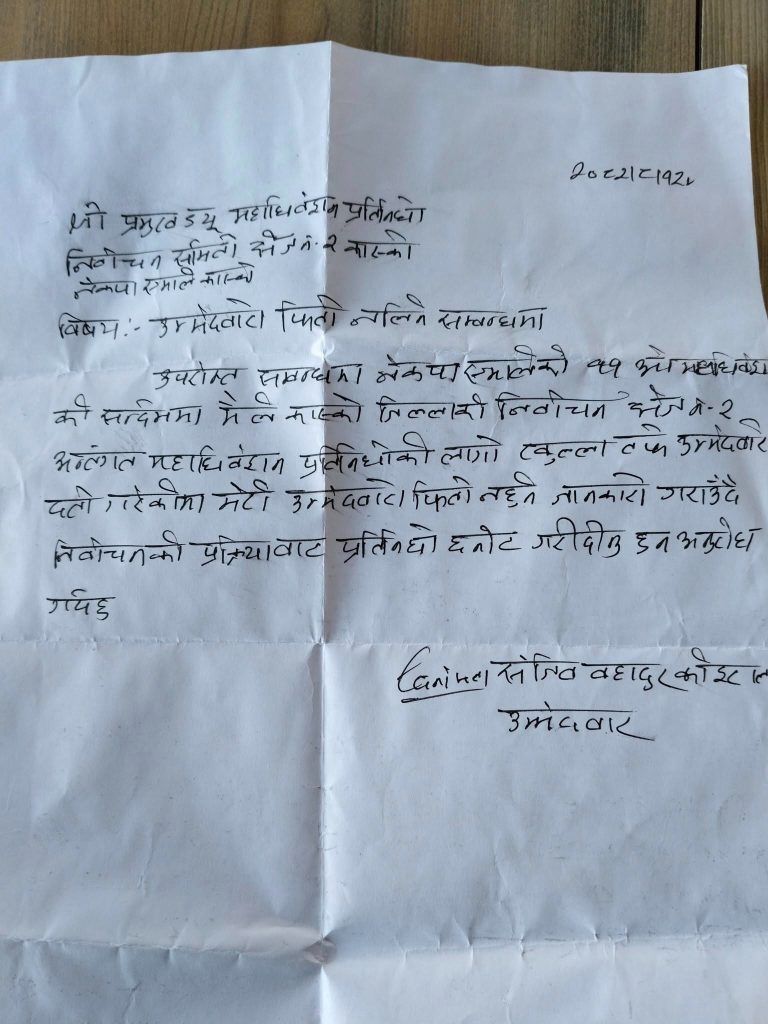 २०८२।८।१२
श्री प्रमुखज्यू महाधिवेशन प्रतिनिधी
निर्वाचन समिती क्षेत्र नं.२ कास्की
नेकपा एमाले कास्की
विषय:- उम्मेदवारी फिर्ता लिने सम्बन्धमा
उपरोक्त सम्बन्धमा नेकपा एमालेको ११ औं महाधिवेशन
को सन्दर्भमा मैले कास्की जिल्लाको निर्वाचन क्षेत्र नं-२
अर्न्तगत महाधिवेशन प्रतिनिधीको लागी खुल्ला तर्फ उम्मेदवारी
दर्ता गरेकोमा मेरो उम्मेदवारी फिर्ता जानकारी गराउँदै
निर्वाचनको प्रक्रियावाट प्रतिनिधी छनोट गरीदीनु हुन अनुरोध
गर्दछु
संजिव वहादुर कोइराला
उम्मेदवार